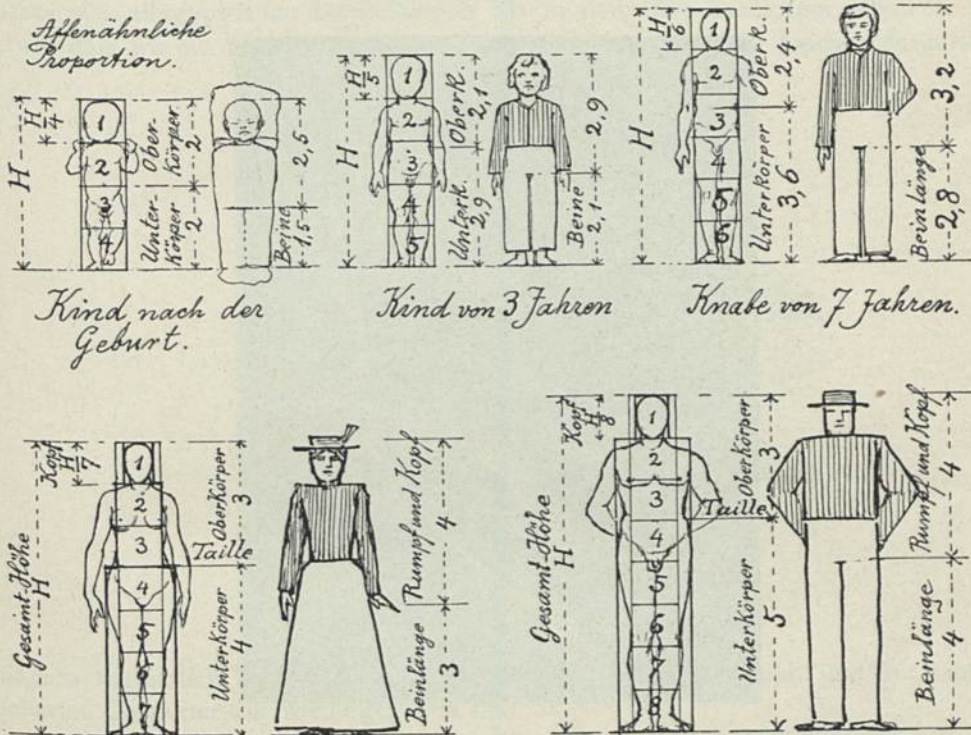 Affenähnliche
Proportion.
H
H/4
1
2
3
4
Ober-
Körper
2
Unter-
Körper
2
2,5
Beine
1,5
Kind nach der
Geburt.
H
H/5
1
2
3
4
5
Oberk.
2,1
Unterk.
2,9
2,9
Beine
2,1
Kind von 3 Jahren
H
H/6
1
2
3
4
5
6
Oberk.
2,4
Unterkörper
3,6
3,2
Beinlänge
2,8
Knabe von 7 Jahren.
Gesamt-Höhe
H
Kopf
H/7
1
2
3
4
5
6
7
Oberkörper
3
Taille
Unterkörper
4
Rumpf und Kopf
4
Beinlänge
3
Gesamt-Höhe
H
Kopf
H/8
1
2
3
4
5
6
7
8
Oberkörper
3
Taille
Unterkörper
5
Rumpf und Kopf
4
Beinlänge
4